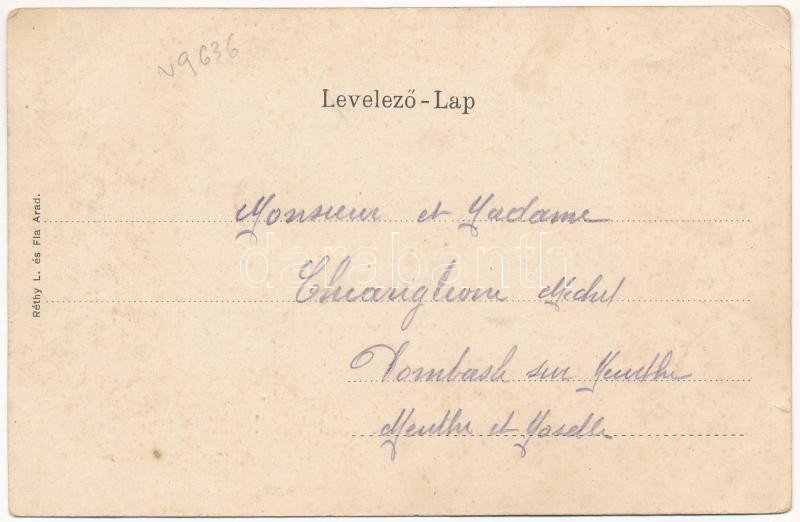 N9636
Levelező-Lap
Réthy L. és Fia Arad.
Monsieur et Madame
darabanth
Michel
Dombasle sur Meurthe
Meurthe et Moselle